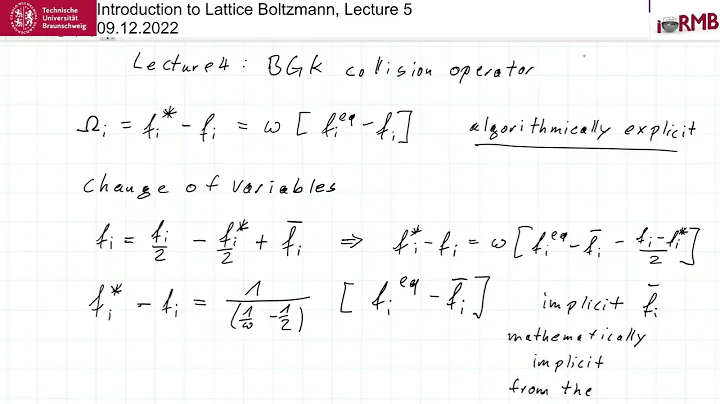 Technische
Universität
Braunschweig
Introduction to Lattice Boltzmann, Lecture 5
09.12.2022
iRMB
Lecture 4 : BGK collision operator
Ω_i = f_i^* - f_i = ω [ f_i^eq - f_i ]
algorithmically explicit
Change of variables
f_i = f_i/2 - f_i^*/2 + f̄_i ⇒ f_i^* - f_i = ω [ f_i^eq - f̄_i - (f_i - f_i^*)/2 ]
f_i^* - f_i = 1/(1/ω - 1/2) [ f_i^eq - f̄_i ]
implicit f̄_i
mathematically
implicit
from the